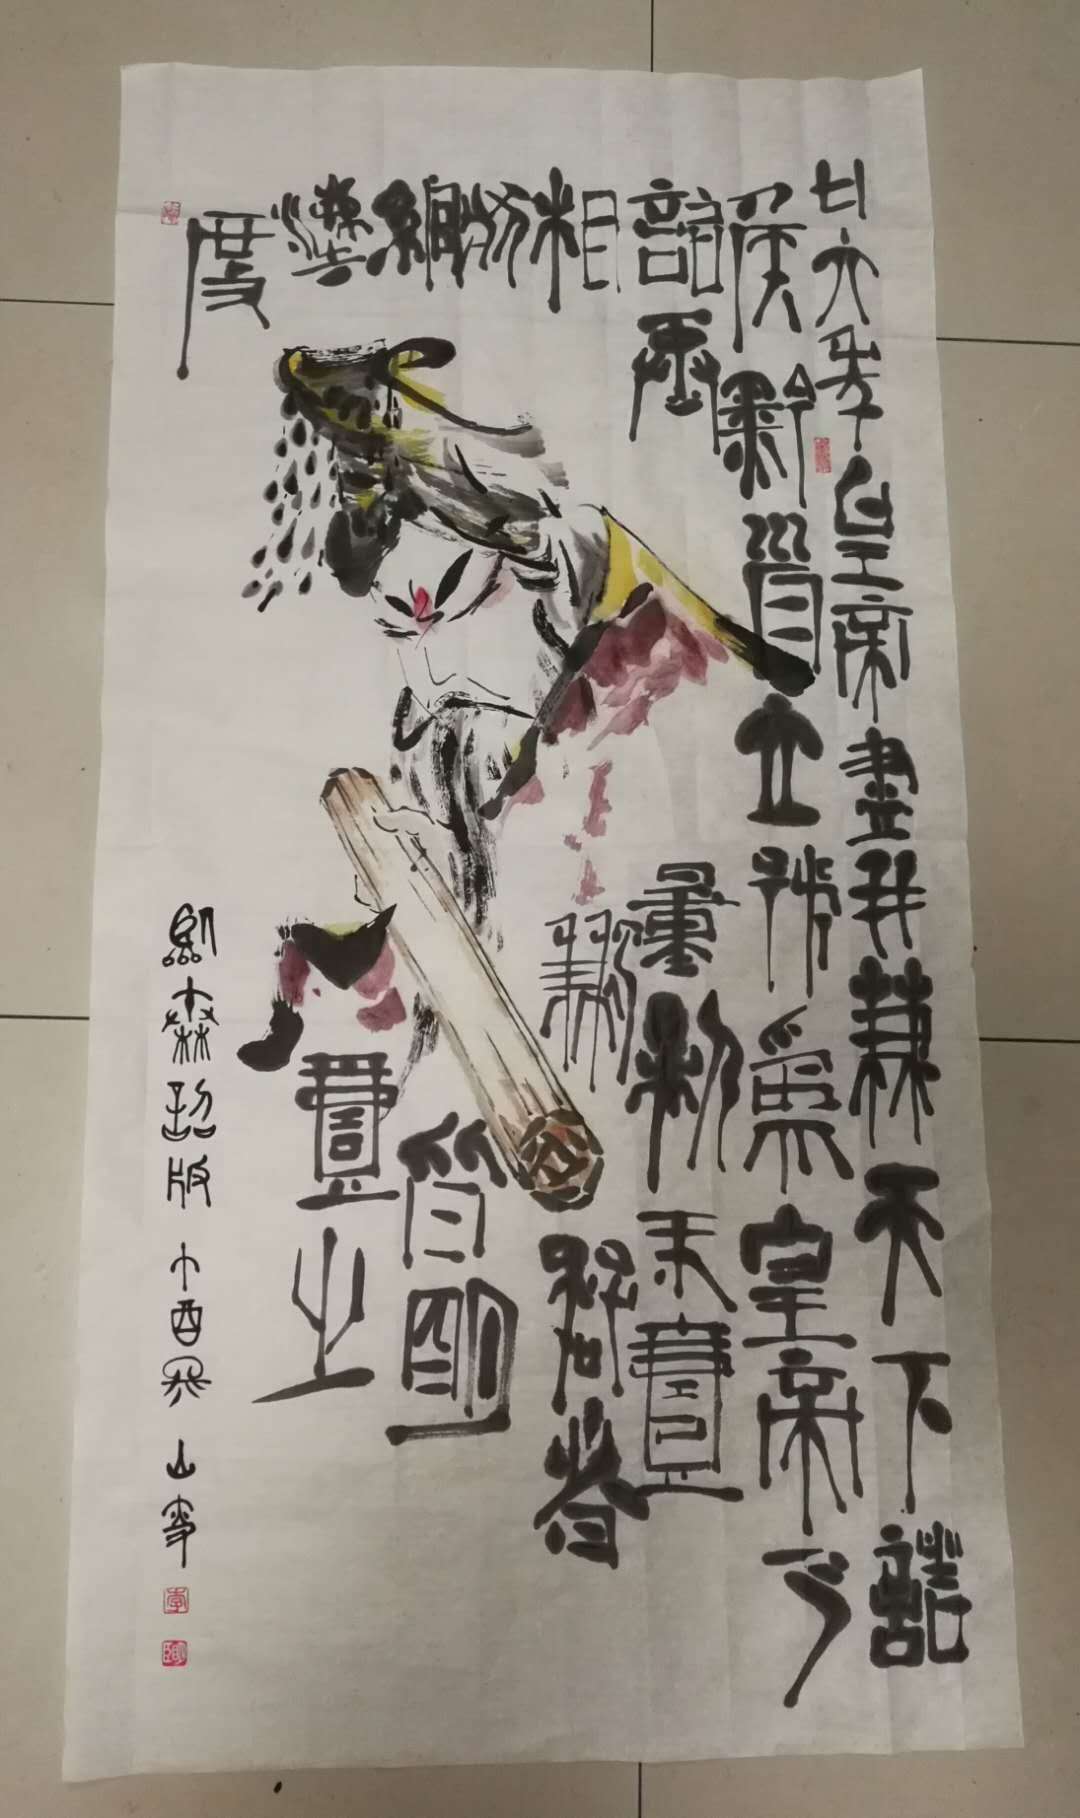 廿六年皇帝盡并兼天下諸
矦黔首立號為皇帝乃
詔丞
相
狀
綰
灋
度
量則不壹
歉疑者
皆明
壹之
詔版 丁酉 山